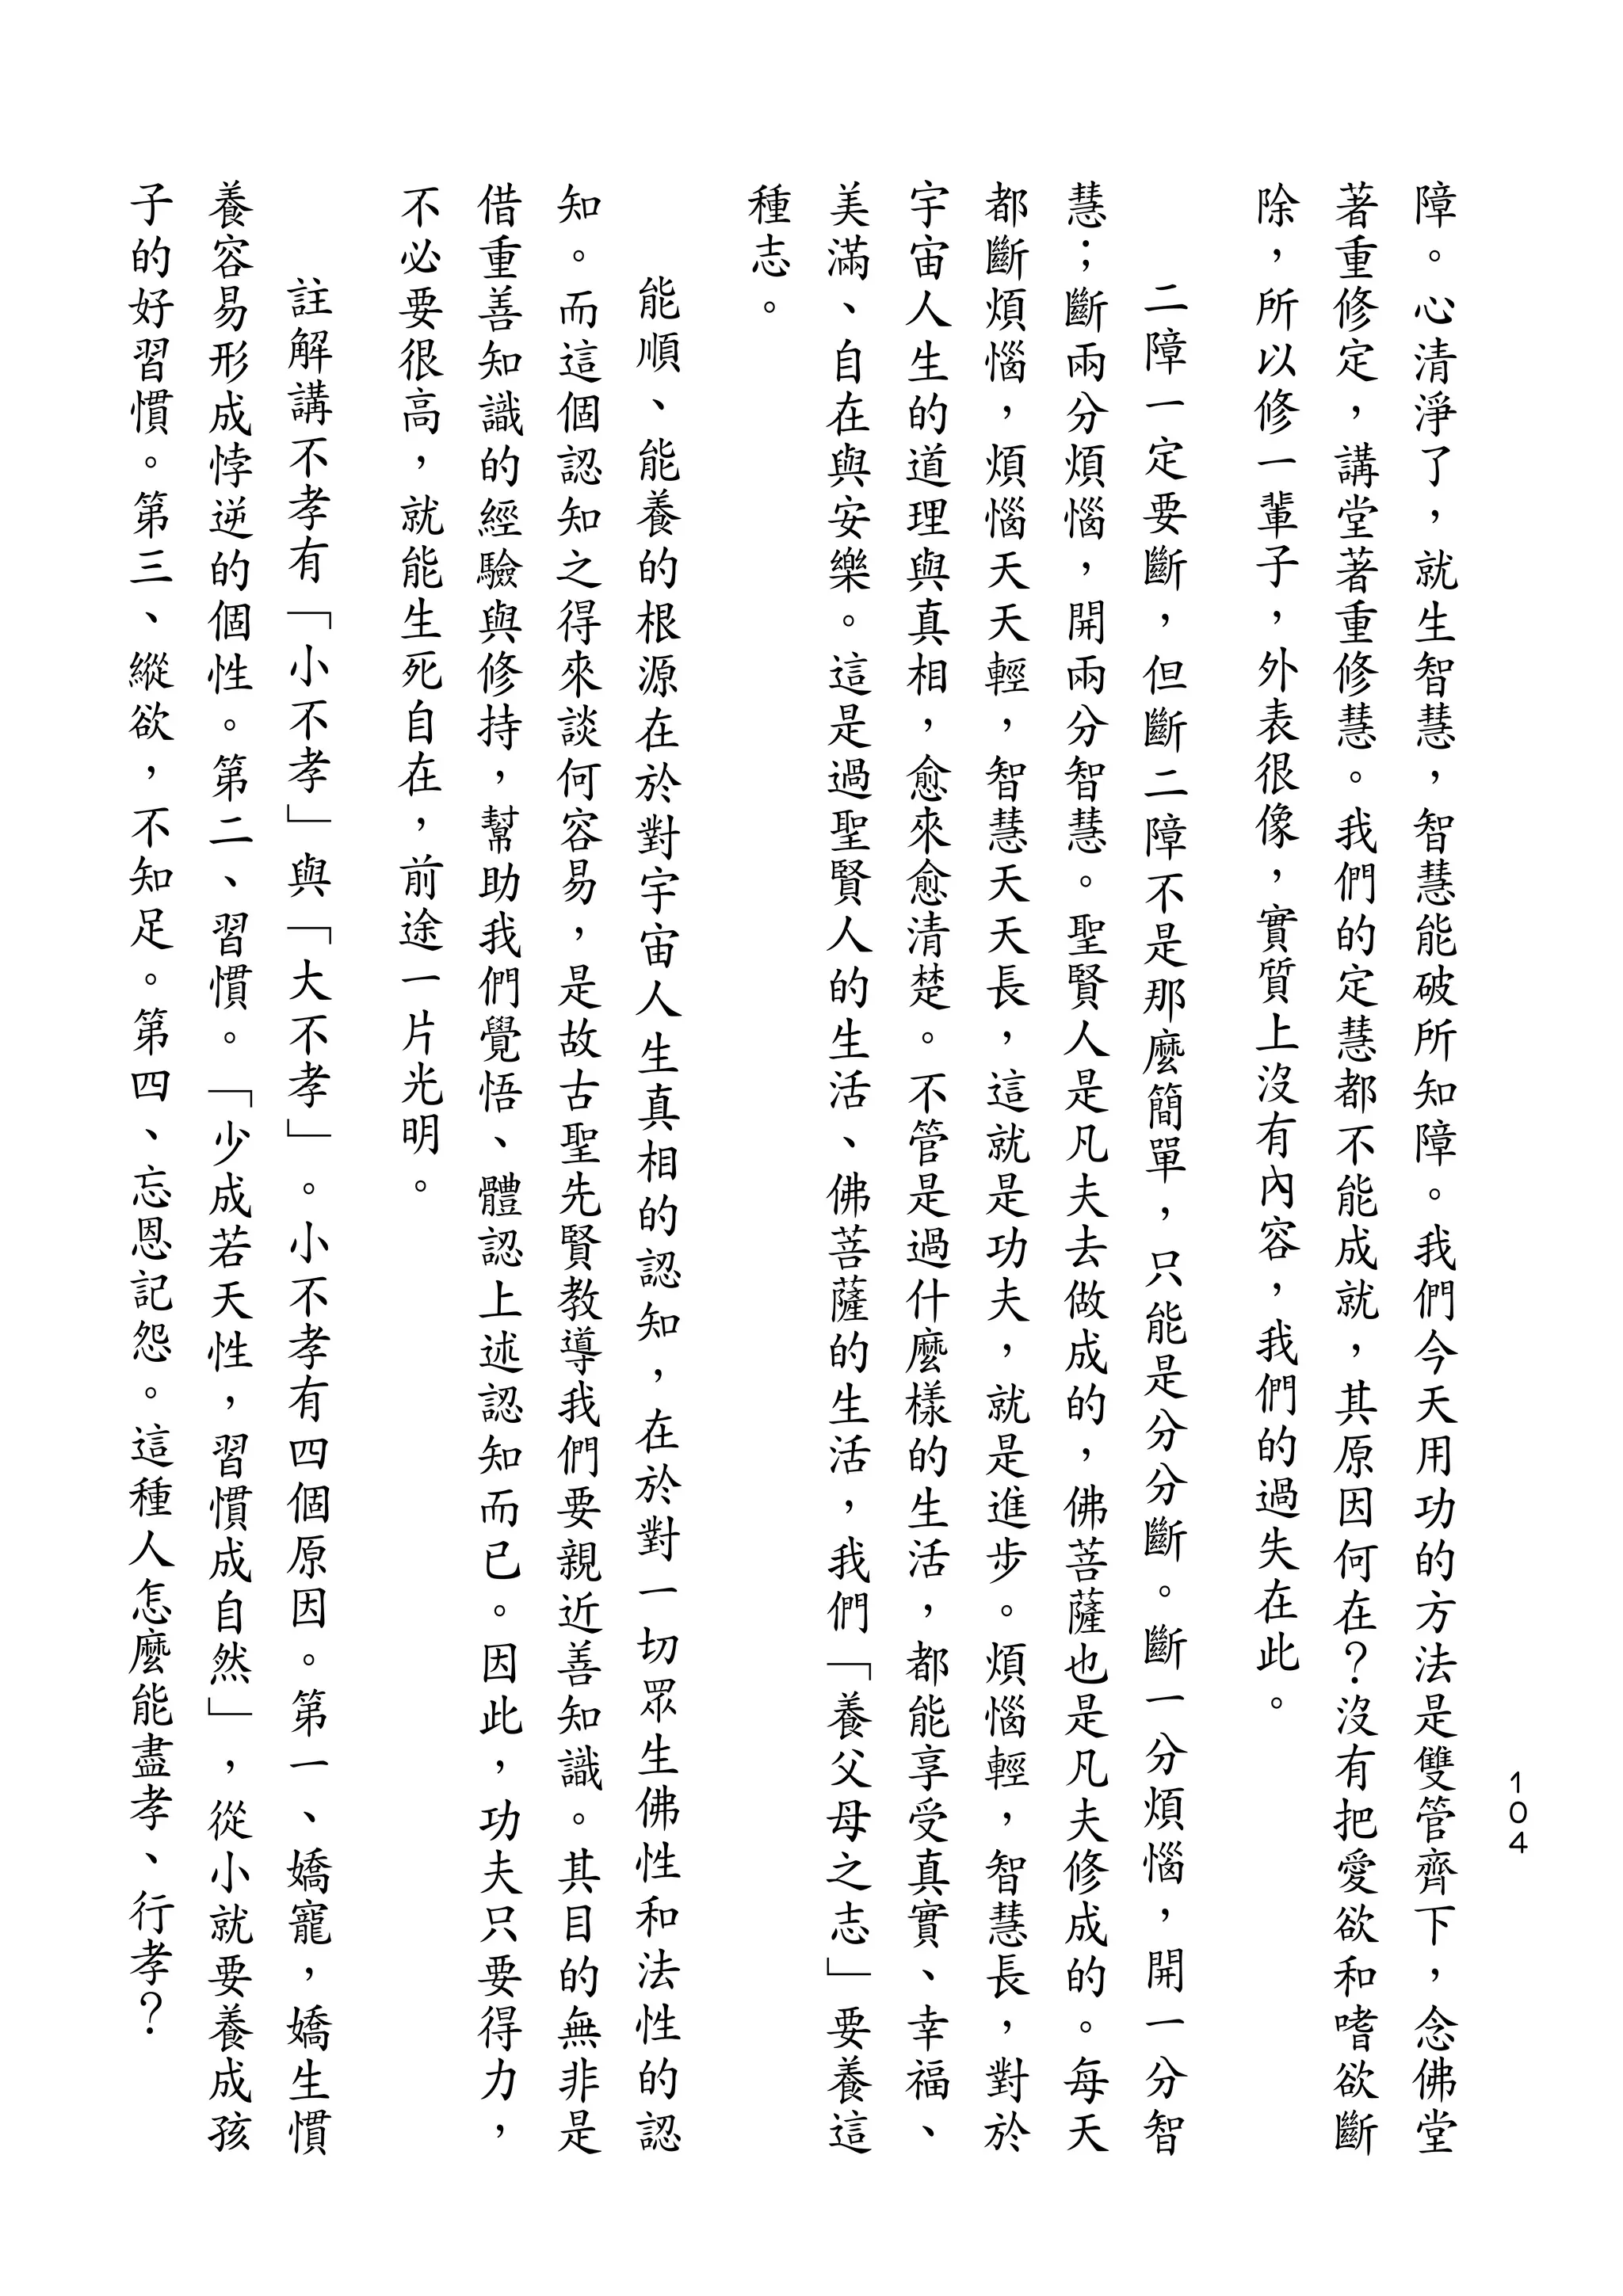 障。心清淨了，就生智慧，智慧能破所知障。我們今天用功的方法是雙管齊下，念佛堂
著重修定，講堂著重修慧。我們的定慧都不能成就，其原因何在？沒有把愛欲和嗜欲斷
除，所以修一輩子，外表很像，實質上沒有內容，我們的過失在此。
二障一定要斷，但斷二障不是那麼簡單，只能是分分斷。斷一分煩惱，開一分智
慧；斷兩分煩惱，開兩分智慧。聖賢人是凡夫去做成的，佛菩薩也是凡夫修成的。每天
都斷煩惱，煩惱天天輕，智慧天天長，這就是功夫，就是進步。煩惱輕，智慧長，對於
宇宙人生的道理與真相，愈來愈清楚。不管是過什麼樣的生活，都能享受真實、幸福、
美滿、自在與安樂。這是過聖賢人的生活、佛菩薩的生活，我們「養父母之志」要養這
種志。
能順、能養的根源在於對宇宙人生真相的認知，在於對一切眾生佛性和法性的認
知。而這個認知之得來談何容易，是故古聖先賢教導我們要親近善知識。其目的無非是
借重善知識的經驗與修持，幫助我們覺悟、體認上述認知而已。因此，功夫只要得力，
不必要很高，就能生死自在，前途一片光明。
註解講不孝有「小不孝」與「大不孝」。小不孝有四個原因。第一、嬌寵，嬌生慣
養容易形成悖逆的個性。第二、習慣。「少成若天性，習慣成自然」，從小就要養成孩
子的好習慣。第三、縱欲，不知足。第四、忘恩記怨。這種人怎麼能盡孝、行孝？
104